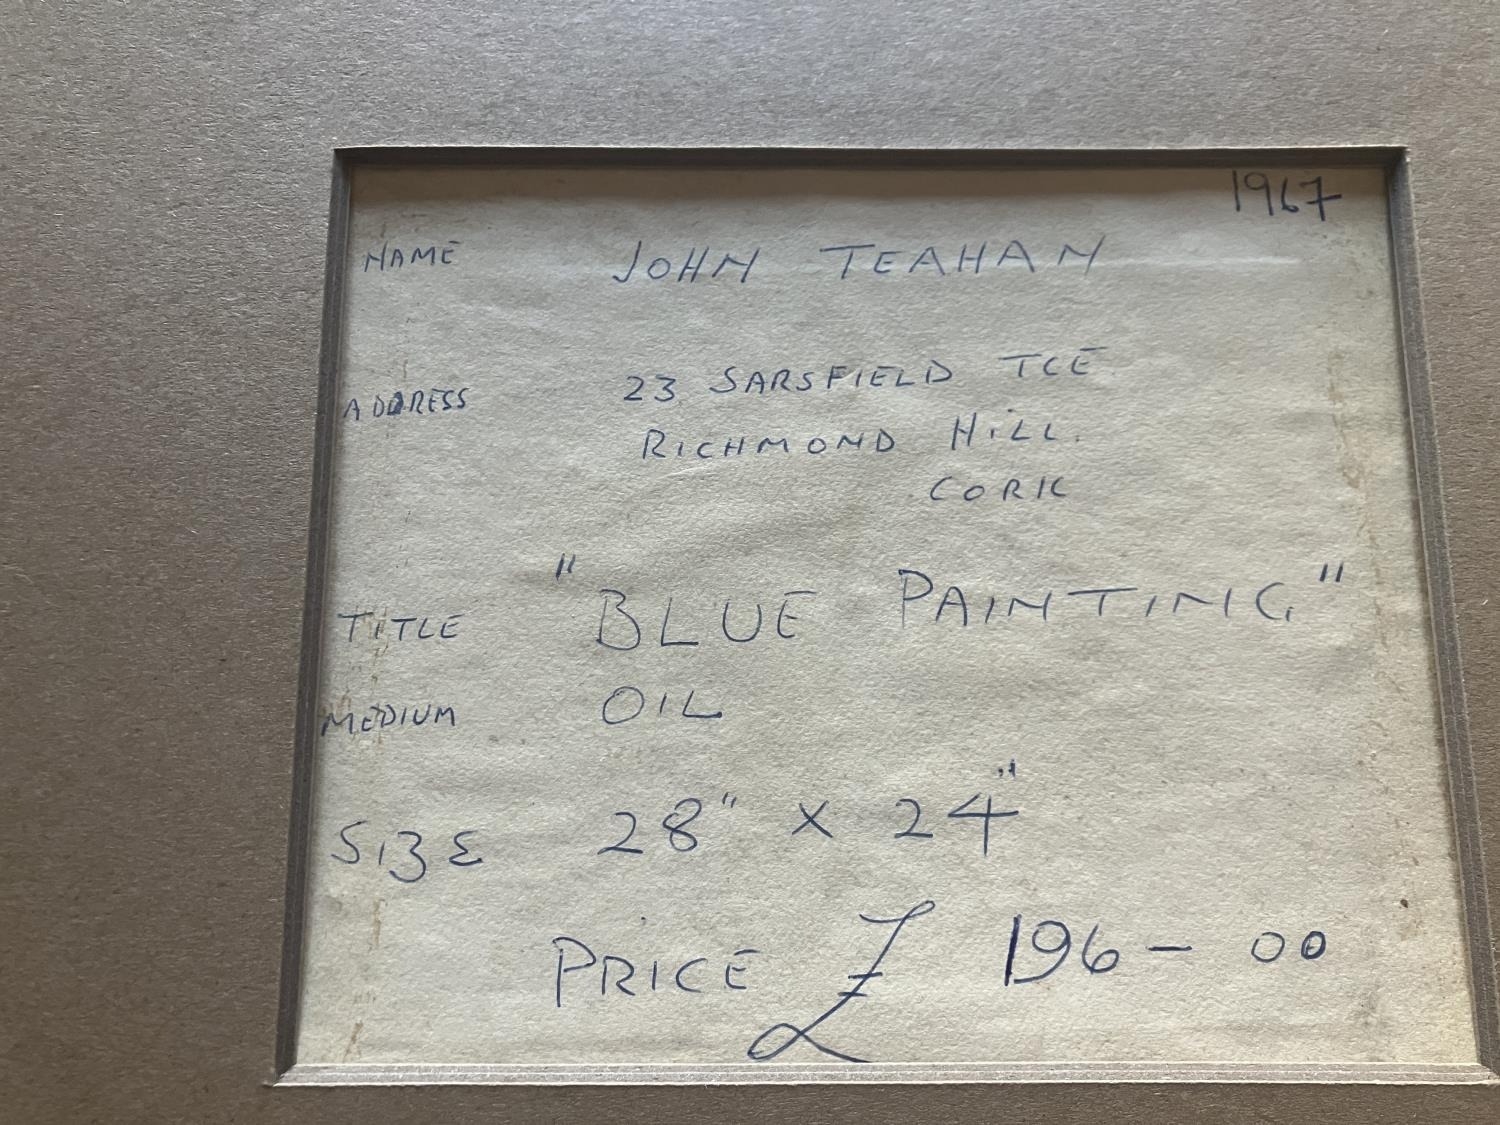 1967
NAME JOHN TEAHAN
ADDRESS 23 SARSFIELD TCE
RICHMOND HILL.
CORK
TITLE "BLUE PAINTING"
MEDIUM OIL
SIZE 28" x 24"
PRICE £ 196 - 00